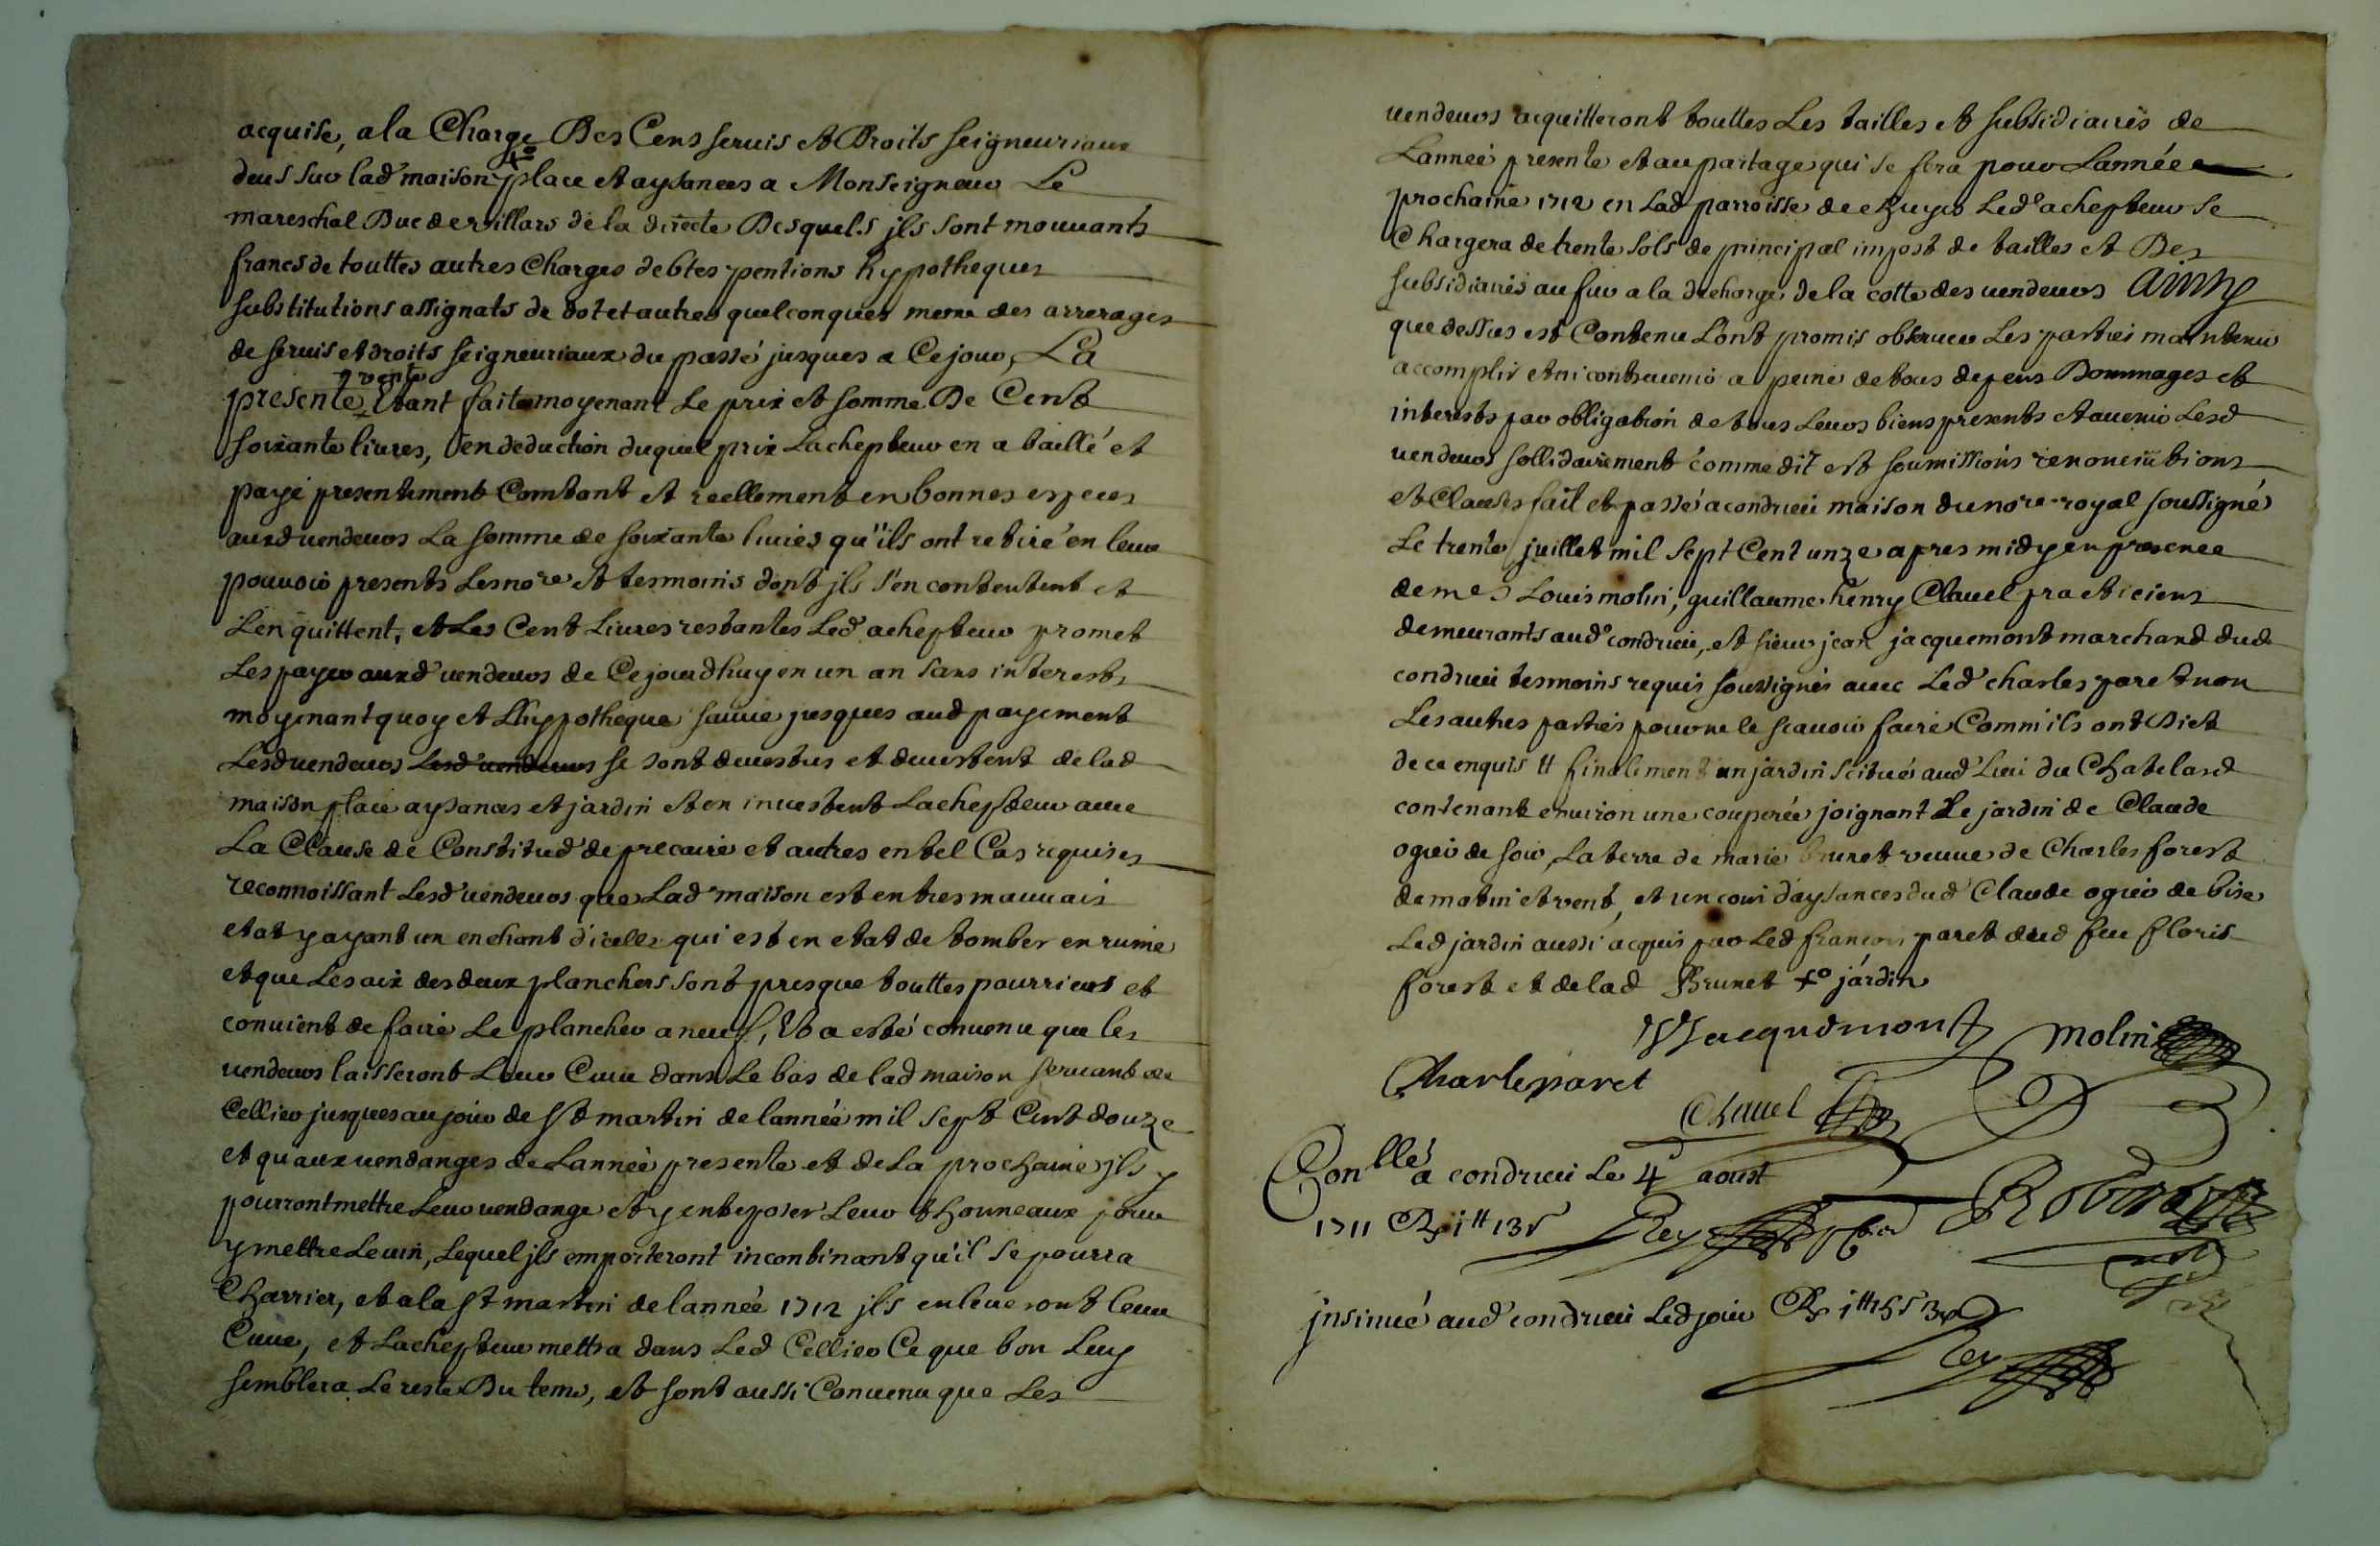 acquise, a la Charge Des Cens servis et Droits seigneuriaux
deus sur lad maison place et aysances a Monseigneur Le
mareschal Duc de villars de la directe Desquels jls sont mouuants
francs de touttes autres Charges debtes pentions hypotheques
substitutions assignats de dot et autres quelconques meme des arrerages
de servis et droits seigneuriaux du passé jusques a Ce jour, La
vente
presente Etant faite moyenant Le prix et somme De Cent
soixante liures, en deduction duquel prix Lachepteur en a baillé et
payé presentement Comtant et reellement en bonnes especes
auxd vendeurs La somme de soixante liures qu'ils ont retiré en leur
pouuoir presents Les nore et tesmoins dont jls s'en contentent et
L'en quittent, et Les Cent Liures restantes Led achepteur promet
Les payer auxd vendeurs de Cejourdhuy en un an sans interests
moyenant quoy et Lhypotheque sauue jusques aud payement
Lesd vendeurs Lesd vendeurs se sont deuestus et deuestent de lad
maison place aysances et jardin et en inuestent Lachepteur auec
La Clause de Constitud de precaire et autres en tel Cas requises
reconnoissant Lesd vendeurs que Lad maison est en tres mauuais
etat y ayant un enchant d'icelle qui est en etat de tomber en ruine
et que Les aix des deux planchers sont presque touttes pourries et
conuient de faire Le plancher a neuf, Et a esté conuenu que les
vendeurs laisseront Leur Cuue dans Le bas de lad maison seruant de
Cellier jusques au jour de St martin de lannée mil sept Cent douze
et qu aux vendanges de Lannée presente et de La prochaine jls y
pourront mettre Leur vendange et y enteposer Leur thonneaux pour
y mettre Le uin, Lequel jls emporteront incontinant qu'il se pourra
Charrier, et a la St martin de lannée 1712 jls enleueront leur
Cuue, et Lachepteur mettra dans Led Cellier Ce que bon Luy
semblera Le reste Du tems, et sont aussi Conuenu que Les
vendeurs acquitteront touttes Les tailles et subsidiaires de
Lannée presente et au partage qui se fera pour Lannée
prochaine 1712 en Lad parroisse de Led achepteur se
Chargera de trente sols de principal impost de tailles et Des
subsidiaires au fur a la decharge de la cotte des vendeurs Ainsy
que dessus est Contenu L'ont promis obseruer Les parties maintenir
accomplir et ni contreuenir a peine de tous depens Dommages et
interests par obligation de tous Leurs biens presents et auenir Lesd
vendeurs sollidairement comme dit est soumissions renonciations
et Clauses fait et passé a condrieu maison du nore royal soussigné
Le trente juillet mil sept Cent unze apres midy en presence
de mes Louis molin, guillaume henry Clauel practiciens
demeurants aud condrieu, et sieur jean jacquemont marchand dud
condrieu tesmoins requis soussignés auec Led charles paret non
Les autres parties pour ne le scauoir faire Comm'ils ont dict
de ce enquis # finalement un jardin scitué aud Lieu du Chatelard
contenant enuiron une couperée joignant Le jardin de Claude
ogier de soir, La terre de marie brunet veuue de Charles forest
de matin et vent, et un cour d'aysances dud Claude ogier de bise
Led jardin aussi acquis par Led francois paret dud feu floris
forest et de lad Brunet +o jardin
Jacquemont molin
Charle paret
Clauel
Conllé a condrieu Le 4 aoust
1711 R 1# 13s Rey Robert
jnsinué aud condrieu Led jour R
Rey